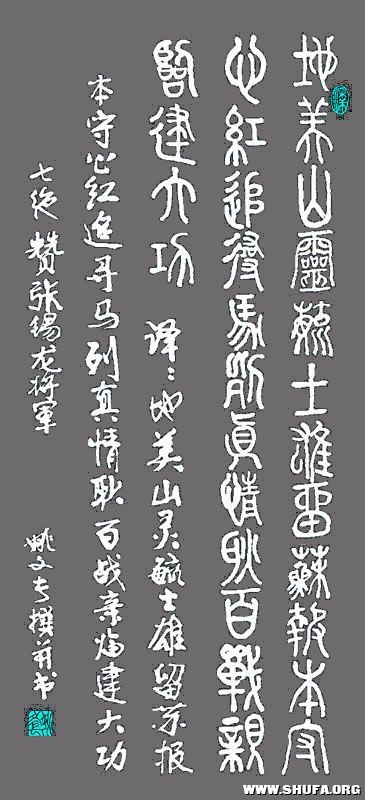 地美山靈毓士雄留蘇報本守
心紅追尋馬列真情耿百戰親
建大功 译：地美山灵毓士雄留苏报
本守心红追寻马列真情耿百战亲建大功
七绝 贊张锡龙将軍
姚文撰并书
WWW.SHUFA.ORG